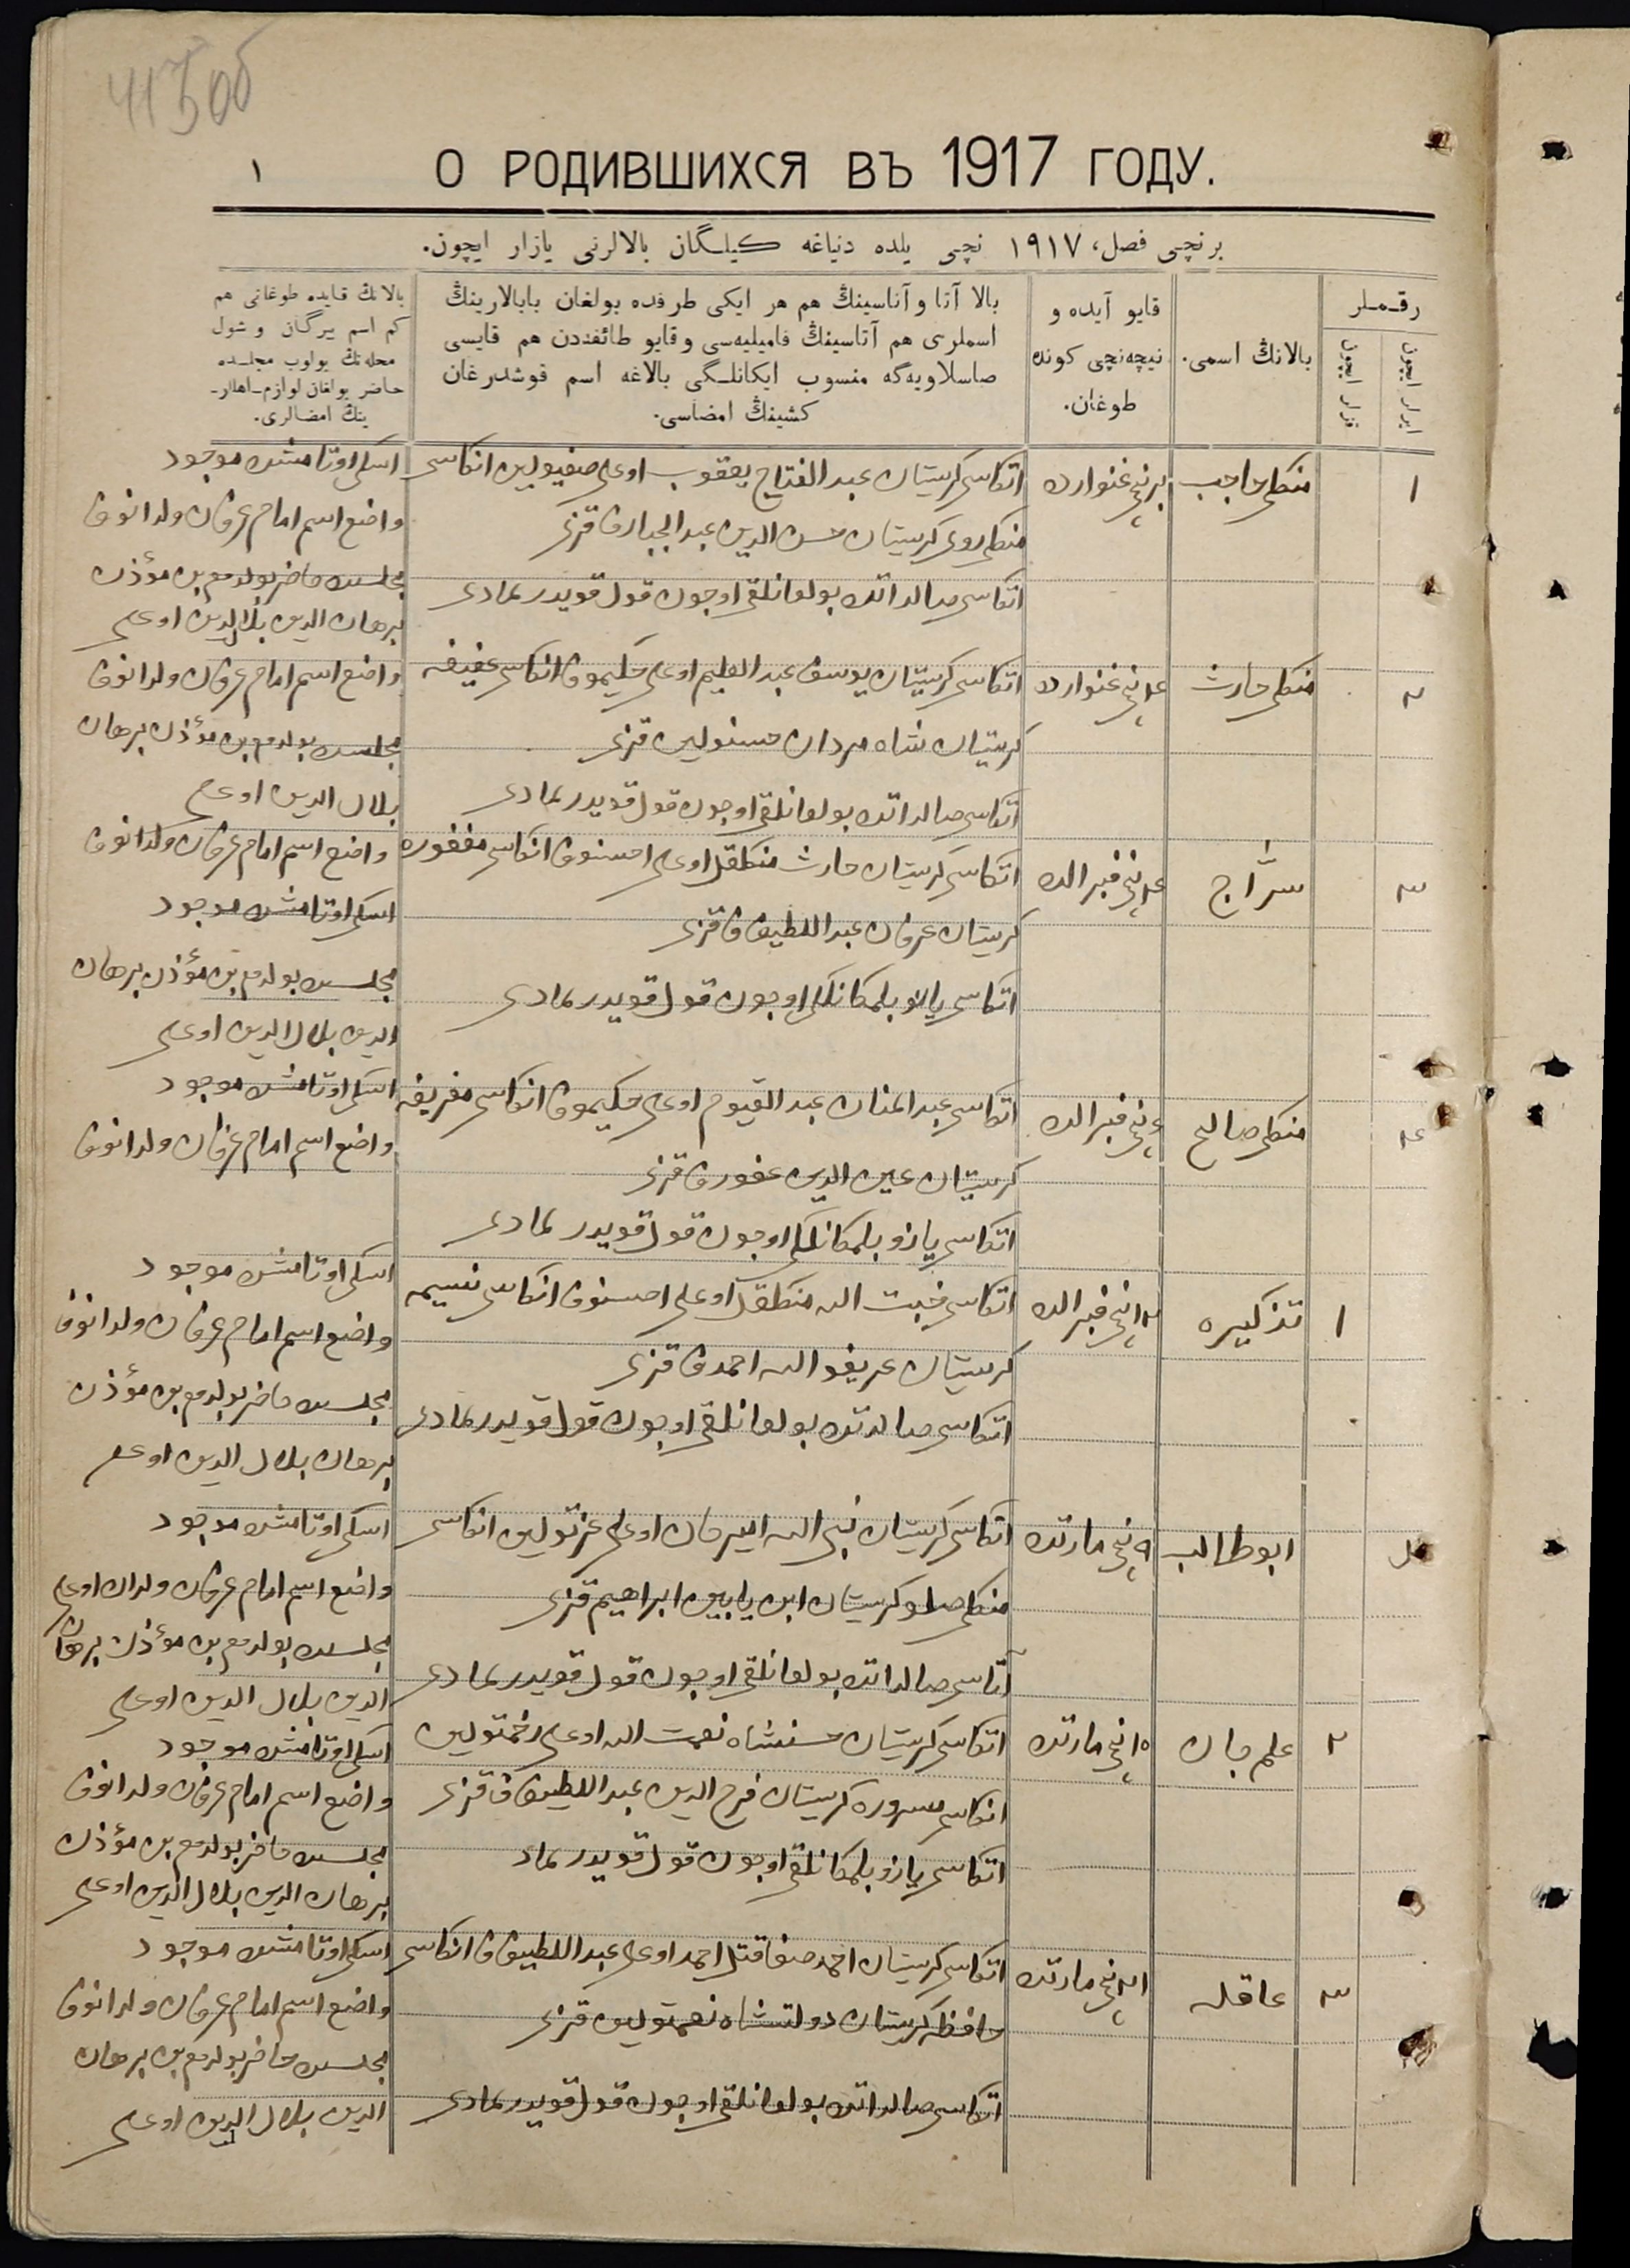 41306
О РОДИВШИХСЯ ВЪ 1917 ГОДУ.
١
برنچی فصل، ١٩١٧ نچی یلده دنیاغه کیلگان بالالرنی یازار ایچون.
رقملر
ایرلر ایچون
قزلر ایچون
بالانڭ اسمی.
قایو آیده و
نیچه‌نچی کونده
طوغان.
بالا آتا و آناسینڭ هم هر ایکی طرفده بولغان بابالارینڭ
اسملری هم آتاسینڭ فامیلیه‌سی و قایو طائفه‌دن هم قایسی
صاسلاویه‌گه منسوب ایکانلگی بالاغه اسم قوشدرغان
کشینڭ امضاسی.
بالانڭ قایده طوغانی هم
کم اسم بیرگان و شول
محله‌نڭ بولوب مجلسده
حاضر بولغان لوازم اهللر
ینڭ امضالری.
١
منکلی حاجب
برنچی غنوارده
اتکاسی کریستیان عبد الفتاح یعقوب اوغلی صفیولین انکاسی
منکلی روی کریستیان حسن الدین عبد الجبارف قزی
اتکاسی صالداتده بولغانلقی اوچون قول قویدرلمادی
اسکی اوتامشده موجود
واضع اسم امام عرفان ولدانوف
مجلسده حاضر بولدم بن مؤذن
برهان الدین بلال الدین اوغلی
٢
منکلی حارث
٤نچی غنوارده
اتکاسی کریستیان یوسف عبد العلیم اوغلی حکیموف انکاسی عفیفه
کریستیان شاه مردان حسنولین قزی
اتکاسی صالداتده بولغانلقی اوچون قول قویدرلمادی
واضع اسم امام عرفان ولدانوف
مجلسده بولدم بن مؤذن برهان
بلال الدین اوغلی
٣
سرّاج
٤نچی فبرالده
اتکاسی کریستیان حارث منکلقل اوغلی احسنوف انکاسی مغفوره
کریستیان عرفان عبد اللطیف ف قزی
اتکاسی یازو بلمکانلکی اوچون قول قویدرلمادی
واضع اسم امام عرفان ولدانوف
اسکی اوتامشده موجود
مجلسده بولدم بن مؤذن برهان
الدین بلال الدین اوغلی
٤
منکلی صالح
٤نچی فبرالده
اتکاسی عبد المنان عبد القیوم اوغلی حکیموف انکاسی مفریفه
کریستیان عین الدین غفورف قزی
اتکاسی یازو بلمکانلکی اوچون قول قویدرلمادی
اسکی اوتامشده موجود
واضع اسم امام عرفان ولدانوف
١
تذکیره
اتکاسی منکلقل اوغلی احسنوف انکاسی نسیمه
کریستیان عریف الله احمدف قزی
اتکاسی صالدتده بولغانلقی اوچون قول قویدرلمادی
اسکی اوتامشده موجود
واضع اسم امام عرفان ولدانوف
مجلسده حاضر بولدم بن مؤذن
برهان بلال الدین اوغلی
ابو طالب
٩نچی مارتده
اتکاسی کریستیان نبی الله امیرجان اوغلی عزتولین انکاسی
منکلی صلو کریستیان ابن یابین ابراهیم قزی
آتاسی صالداتده بولغانلقی اوچون قول قویدرلمادی
اسکی اوتامشده موجود
واضع اسم امام عرفان ولدان اوغلی
مجلسده بولدم بن مؤذن برهان
الدین بلال الدین اوغلی
٢
علم جان
١٥نچی مارتده
اتکاسی کریستیان حسنشاه نعمت الله اوغلی رحمتولین
انکاسی مسروره کریستیان فرح الدین عبد اللطیف ف قزی
اتکاسی یازو بلمکانلقی اوچون قول قویدرلماد
اسکی اوتامشده موجود
واضع اسم امام عرفان ولدانوف
مجلسده حاضر بولدم بن مؤذن
برهان الدین بلال الدین اوغلی
٣
عاقله
نچی مارتده
اتکاسی کریستیان احمد صفا قتل احمد اوغلی عبد اللطیف ف انکاسی
حافظه کریستیان دولتشاه نعمتولین قزی
اتکاسی صالداتده بولغانلقی اوچون قول قویدرلمادی
اسکی اوتامشده موجود
واضع اسم امام عرفان ولدانوف
مجلسده حاضر بولدم بن برهان
الدین بلال الدین اوغلی